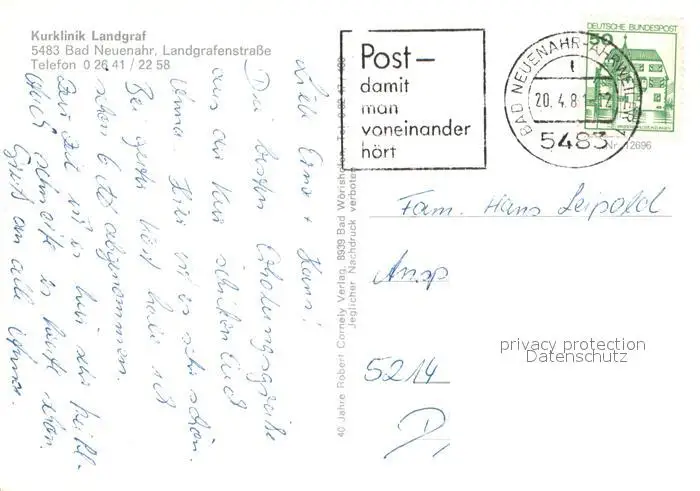 Kurklinik Landgraf
5483 Bad Neuenahr, Landgrafenstraße
Telefon 0 26 41 / 22 58
Post-
damit
man
voneinander
hört
BAD NEUENAHR-AHRWEILER 1
20.4.81
12
5483
DEUTSCHE BUNDESPOST
50
Nr. 12696
Liebe Erna + Hans!
Die besten Erholungsgrüße
aus der Kur schicken Euch
Hier ist es sehr schön.
Bei
schon 6 abgenommen.
Zur Zeit ist es hier sehr
schneite es heute schon.
Gruß an alle
40 Jahre Robert Cornely Verlag, 8939 Bad Wörishofen, Tel.
Jeglicher Nachdruck verboten
Fam. Hans Leipold
5214
D,
privacy protection
Datenschutz